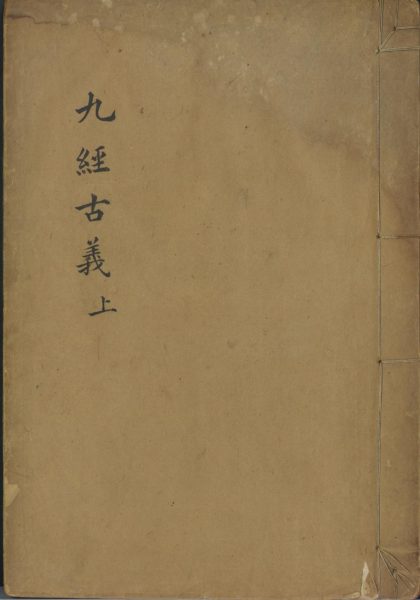 九經古義上